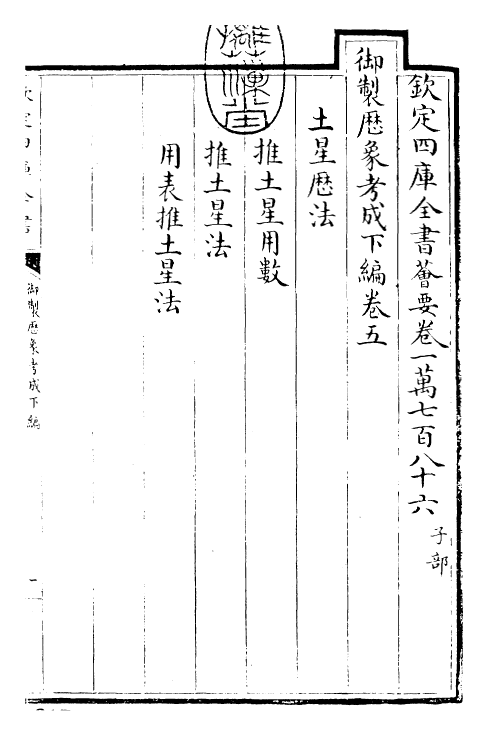 欽定四庫全書薈要卷一萬七百八十六 子部
御製歷象考成下編卷五
土星歷法
推土星用數
推土星法
用表推土星法
御製歷象考成下編
一